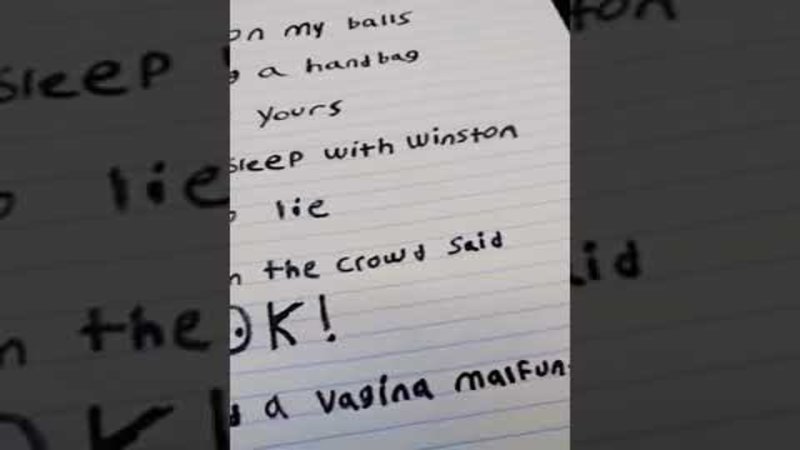 on my balls
a handbag
yours
sleep with winston
lie
the crowd said
OK!
a vagina malfun